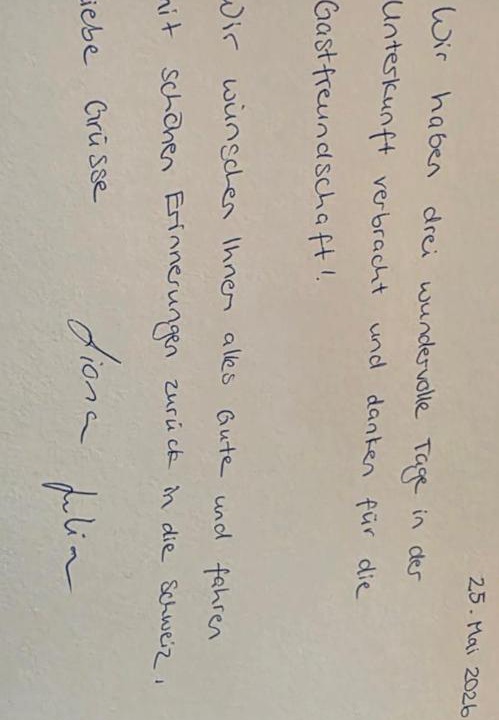 25. Mai 2026
Wir haben drei wundervolle Tage in der
Unterkunft verbracht und danken für die
Gastfreundschaft!
Wir wünschen Ihnen alles Gute und fahren
mit schönen Erinnerungen zurück in die Schweiz.
iebe Grüsse
Liona Julia